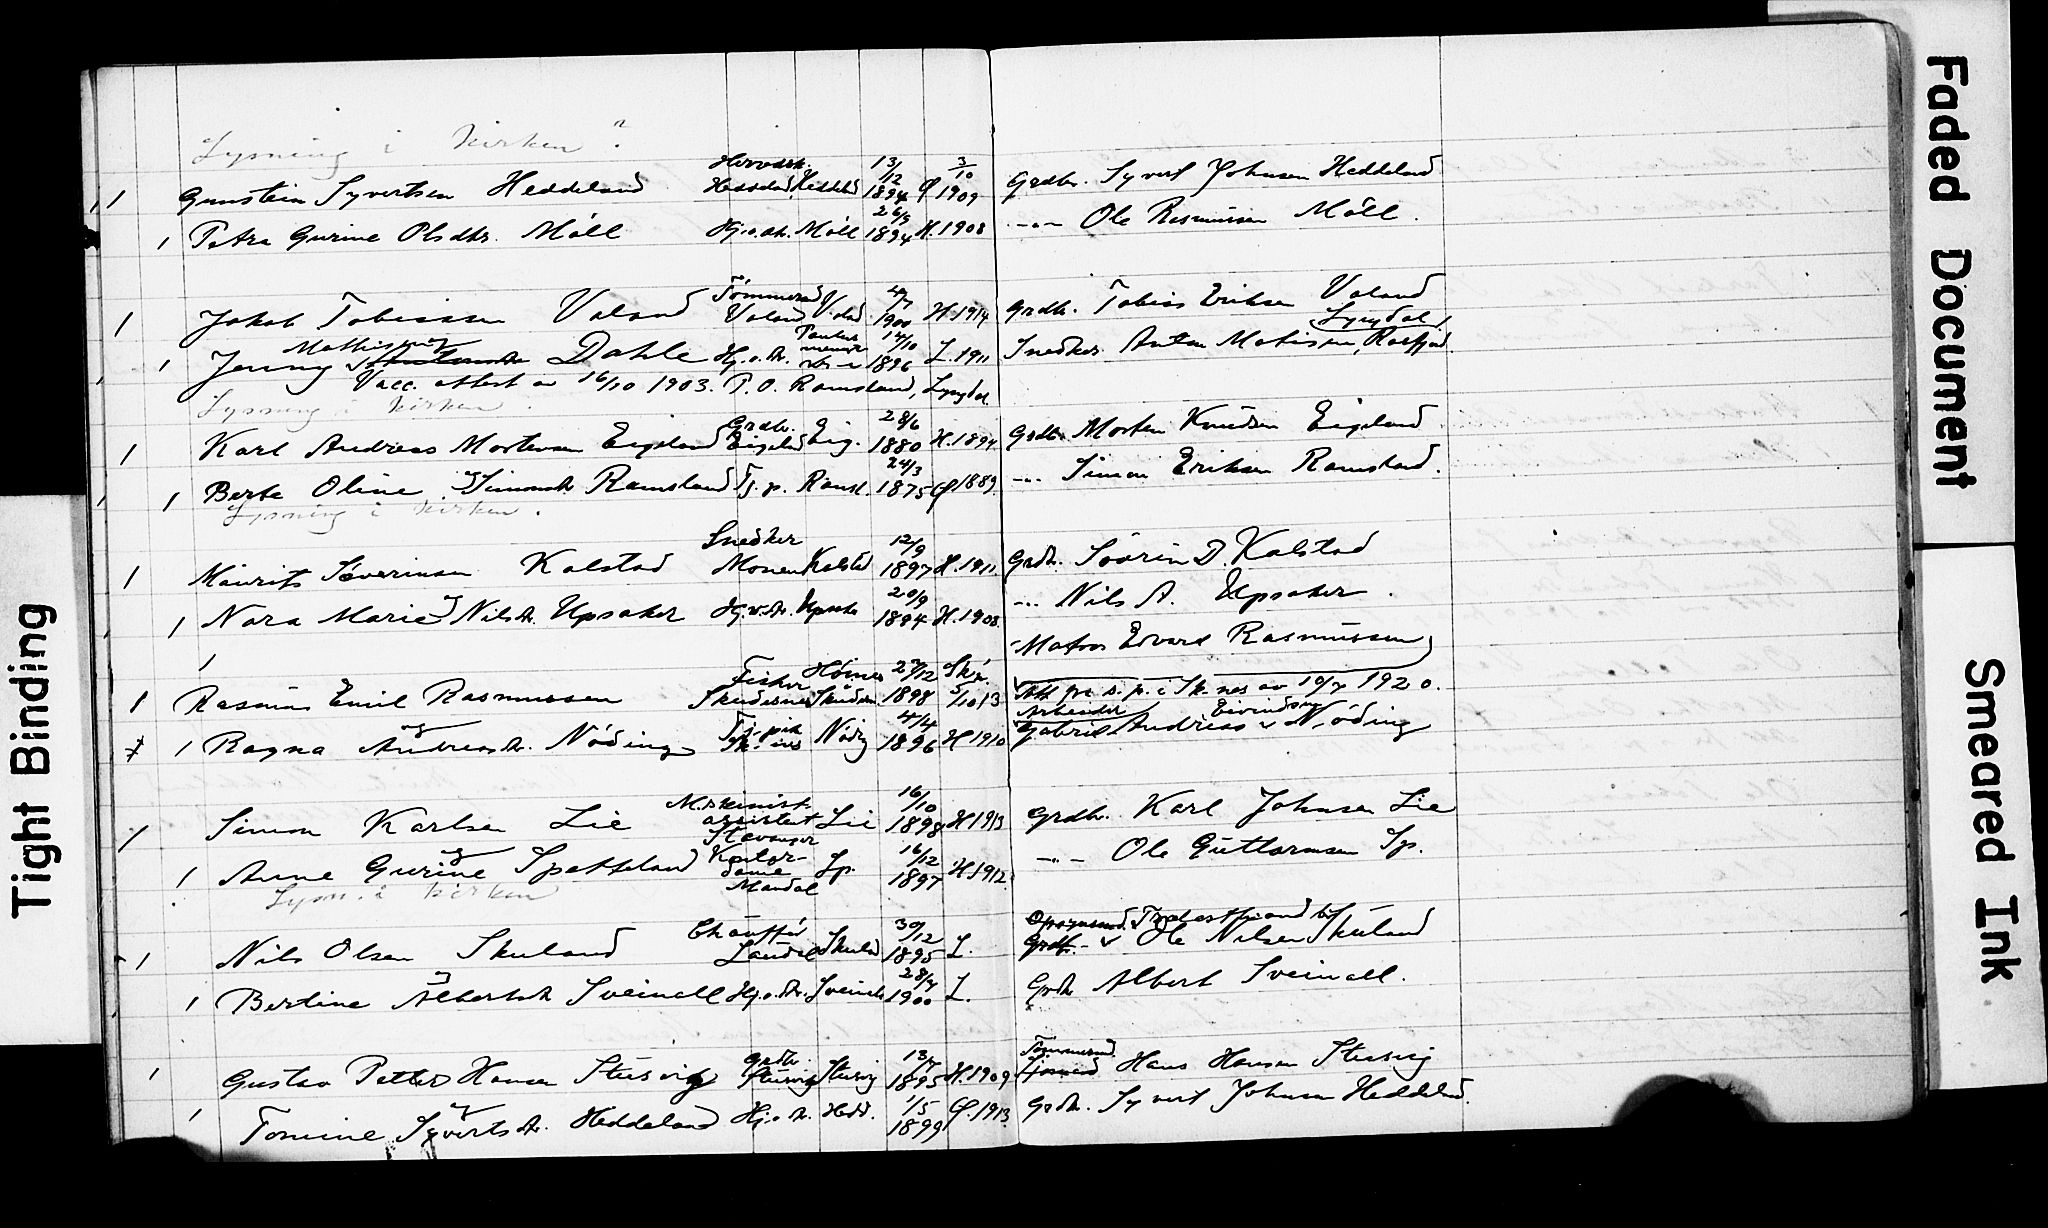 Lysning i kirken?
1 Gunstein Syvertsen Heddeland Heddeland Heddld 13/12 1894 3/10 1909 Grdbr. Syvert Johnsen Heddeland
1 Petra Gurine Olsdtr. Möll Hj.o.dtr. Möll 26/3 1894 H.1908 -"- Ole Rasmussen Möll.
1 Jakob Tobiassen Valand Tömmermd Valand Valand 4/7 1900 H.1914 Grdbr. Tobias Eriksen Valand
1 Jenny Mathisen Dahle Hj.o.dtr. 14/10 1896 L.1911 Snedker Anton Matisen, Rosfjord, Lyngdal
Vacc. attest av 16/10 1903. P. O. Ramsland, Lyngdal
Lysning i kirken.
1 Karl Andreas Mortensen Eigeland Grdbr. Eigeland Eig. 28/6 1880 H.1894 Grdbr. Morten Knudsen Eigeland
1 Berte Oline Simonsdtr. Ramsland Tj.p. Ramsl. 24/3 1875 1889. -"- Simon Eriksen Ramsland.
Lysning i kirken.
1 Maurits Severinsen Kalstad Snedker Monen Kalstad 12/9 1897 H.1911. Grdbr. Söorin D. Kalstad
1 Nora Marie Nilsdtr. Upsaker Hj.v.dtr. Upsaker 20/9 1894 H.1908. -"- Nils A. Upsaker.
Matros Edvard Rasmussen
1 Rasmus Emil Rasmussen Fisker Skudesnes 27/12 1898 5/10 13 Att fra s.p. i Sk.nes av 10/7 1920.
1 Ragna Andreasdtr. Nöding Nödg 4/4 1896 H 1910 Arbeider Gabriel Andreas Eivindsen Nöding
1 Simon Karlsen Lie Maskinist assistent Stavanger Lie 16/10 1898 H 1913 Grdbr. Karl Johnsen Lie
1 Anne Gurine Spetteland Kontordame Mandal Sp. 16/12 1897 H.1912 -"- Ole Guttormsen Sp.
Lysn. i kirken
1 Nils Olsen Skuland Chaufför Laudal Skuland 30/12 1895 L. Grdbr. Ole Nilsen Skuland
1 Bertine Albertsdtr. Sveinall Hj.o.dtr. Sveinall 28/7 1900 L. Grdbr. Albert Sveinall.
1 Gustav Petter Hansen Stusvig Grdbr. Stusvig Stusvig 13/7 1895 H.1909 Tömmermd. Hans Hansen Stusvig
1 Tomine Syvertsdtr. Heddeland Hj.o.dtr. Hedd. 1/5 1899 1913 Grdbr. Syvert Johnsen Heddeland.
Tight Binding
Faded Document
Smeared Ink